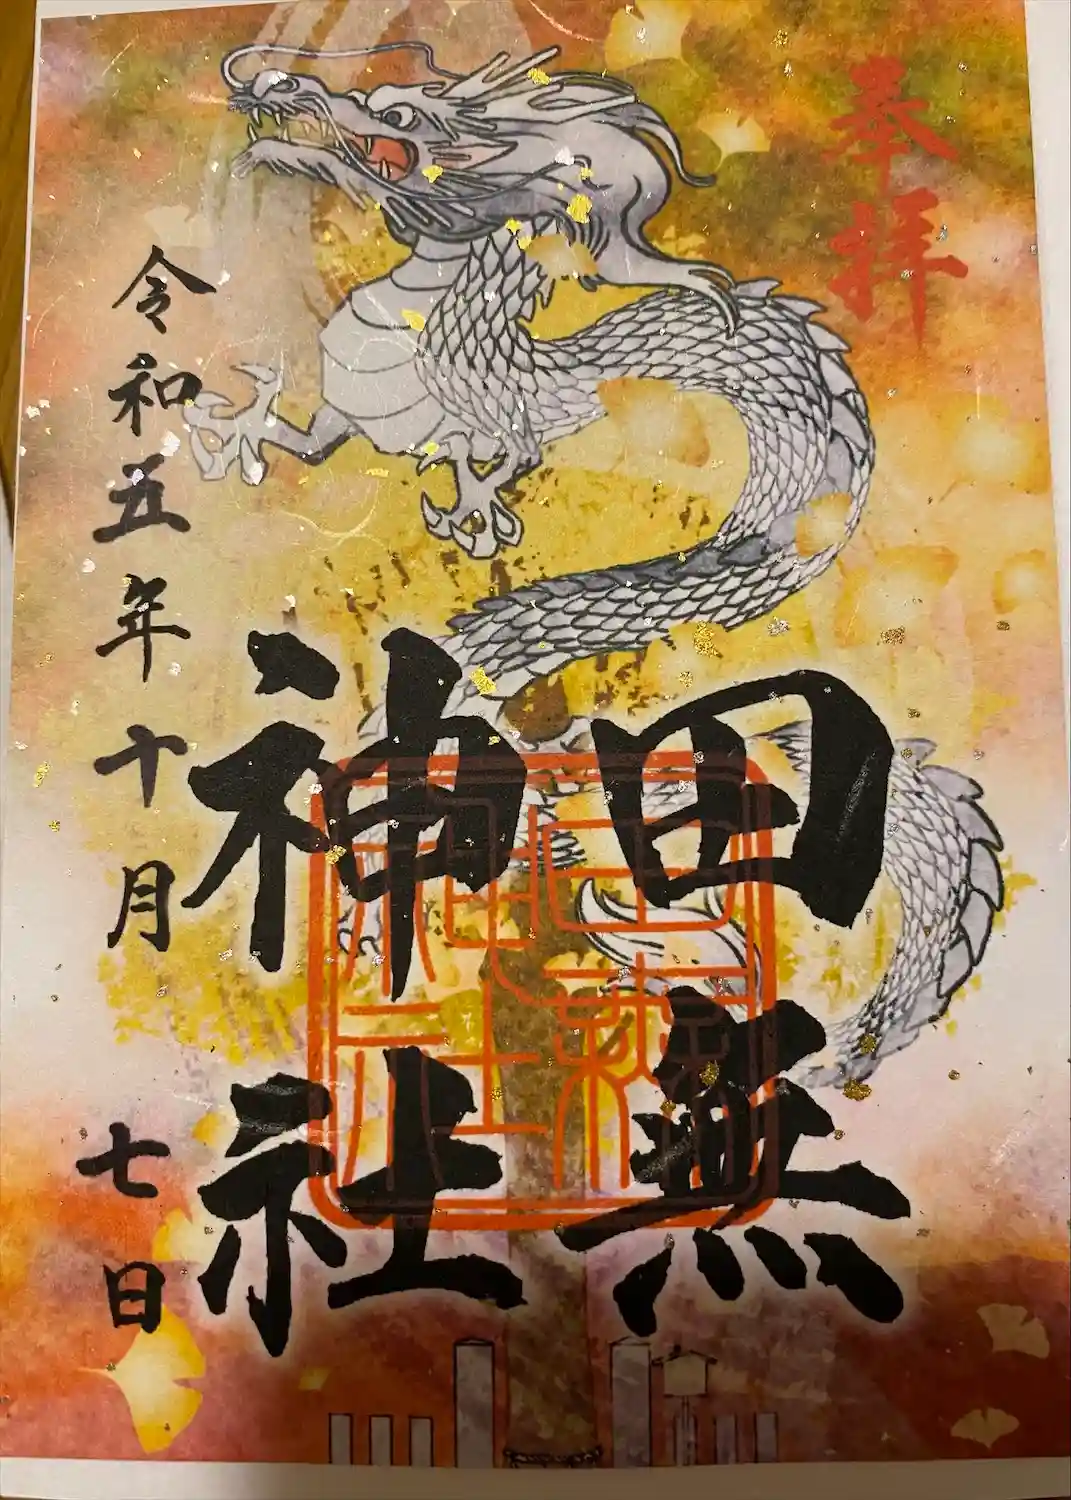 奉拝
田無
神社
令和五年十月七日
田無
神社